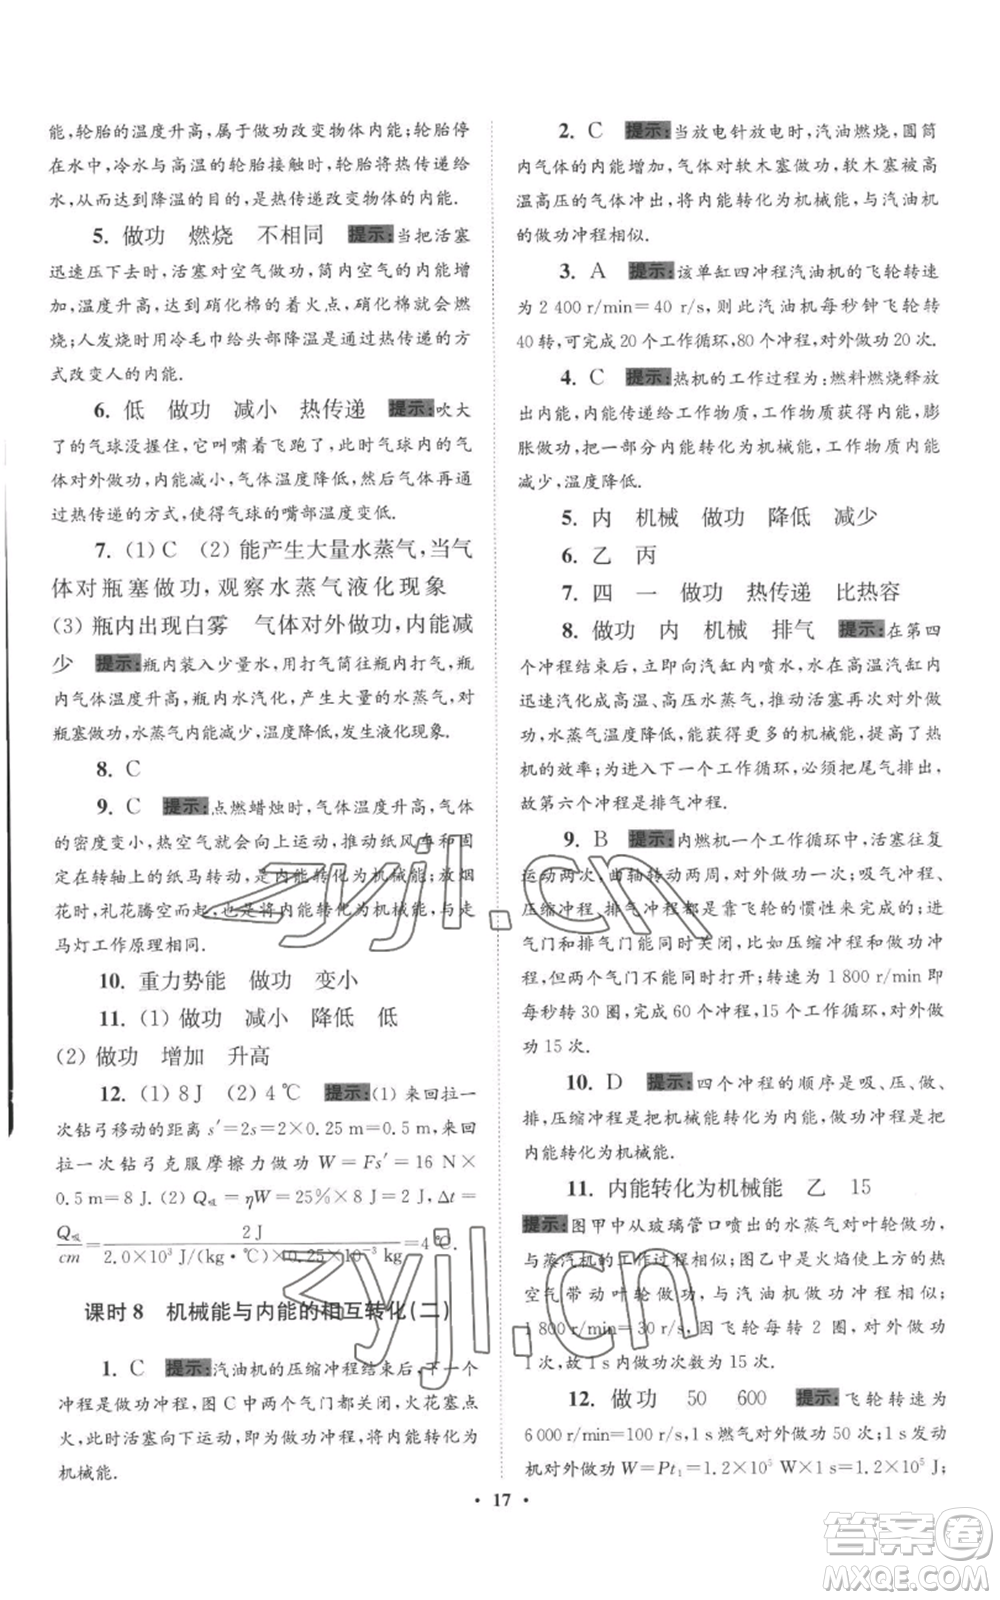 能,轮胎的温度升高,属于做功改变物体内能;轮胎停
在水中,冷水与高温的轮胎接触时,轮胎将热传递给
水,达到降温的目的,是热传递改变物体的内能.
5. 做功 燃烧 不相同 提示:当把活塞
迅速压下去时,活塞对空气做功,筒内空气的内能增
加,温度升高,达到硝化棉的着火点,硝化棉燃
烧;人发烧时用冷毛巾给头部降温是用热传递的方
式改变人的内能.
6. 低 做功 减小 热传递 提示:吹大
了的气球没握住,它呜啸着飞跑了,此时气球内的气
体对外做功,内能减小,温度降低,然后气体再通
过热传递的方式,使得气球的嘴部温度变低.
7. (1) C (2) 能产生大量水蒸气,当气
体对瓶塞做功,观察水蒸气液化现象
(3) 瓶内出现白雾 气体对外做功,内能减
少 提示:瓶内装入少量水,用打气筒往瓶内打气,
瓶内气体温度升高,瓶内水汽化,产生大量的水蒸气,对
瓶塞做功,水蒸气内能减少,温度降低,发生液化现象.
8. C
9. C 提示:点燃蜡烛时,气体温度升高,气体
的密度变小,热空气就会向上运动,推动纸风车和固
定在转轴上的纸马转动,是内能转化为机械能;放烟
花时,礼花腾空而起,也是将内能转化为机械能,与走
马灯工作原理相同.
10. 重力势能 做功 变小
11. (1) 做功 减小 降低 低
(2) 做功 增加 升高
12. (1) 8 J (2) 4 ℃ 提示:(1) 来回拉一
次钻弓移动的距离 s′=2s=2×0.25 m=0.5 m,来回
拉一次钻弓克服摩擦力做功 W=Fs′=16 N×
0.5 m=8 J. (2) Q吸=ηW=25%×8 J=2 J,Δt=
Q吸/cm=2 J/(2.0×10³ J/(kg·℃)×0.25×10⁻³ kg)=4 ℃.
课时 8 机械能与内能的相互转化(二)
1. C 提示:汽油机的压缩冲程结束后,下一个
冲程为做功冲程,图 C 中两个气门都关闭,火花塞点
火,此时活塞向下运动,是做功冲程,将内能转化为
机械能.
2. C 提示:当放电针放电时,汽油燃烧,圆筒
内气体的内能增加,气体对软木塞做功,软木塞被高
温高压的气体冲出,将内能转化为机械能,与汽油机
的做功冲程相似.
3. A 提示:该单缸四冲程汽油机的飞轮转速
为 2 400 r/min=40 r/s,则此汽油机每秒钟飞轮转
40 转,可完成 20 个工作循环,80 个冲程,对外做功 20 次.
4. C 提示:热机的工作过程为:燃料燃烧释放
出内能,内能传递给工作物质,工作物质获得内能,膨
胀做功,把一部分内能转化为机械能,工作物质内能
减少,温度降低.
5. 内 机械 做功 降低 减少
6. 乙 丙
7. 四 一 做功 热传递 比热容
8. 做功 内 机械 排气 提示:在第四
个冲程结束后,立即向汽缸内喷水,水在高温汽缸内
迅速汽化成高温、高压水蒸气,推动活塞再次对外做
功,水蒸气温度降低,能获得更多的机械能,提高了热
机的效率;为进入下一个工作循环,必须把尾气排出,
故第六个冲程是排气冲程.
9. B 提示:内燃机一个工作循环中,活塞往复
运动两次,曲轴转动两周,对外做功一次;吸气冲程、
压缩冲程、排气冲程是靠飞轮的惯性来完成的;进
气门和排气门可能同时关闭,比如压缩冲程、做功冲
程,但两个气门不能同时打开;转速为 1 800 r/min 即
每秒转 30 圈,完成 60 个冲程,15 个工作循环,对外做
功 15 次.
10. D 提示:四个冲程的顺序是吸、压、做、
排,压缩冲程是把机械能转化为内能,做功冲程是把
内能转化为机械能.
11. 内能转化为机械能 乙 15
提示:图甲中从玻璃管口喷出的水蒸气对叶轮做功,
与蒸汽机的工作过程相似;图乙中是火焰使上方的热
空气对叶轮做功,与燃气轮机的工作过程相似.
1 800 r/min=30 r/s,因飞轮每转 2 圈,对外做功
1 次,故 1 s 内做功次数为 15 次.
12. 做功 50 600 提示:飞轮转速为
6 000 r/min=100 r/s,1 s 燃气对外做功 50 次;1 s 发动
机对外做功 W=Pt₁=1.2×10⁵ W×1 s=1.2×10⁵ J;
· 17 ·
zyjl.cn
zyjl.cn
答案圈
MXQE.COM